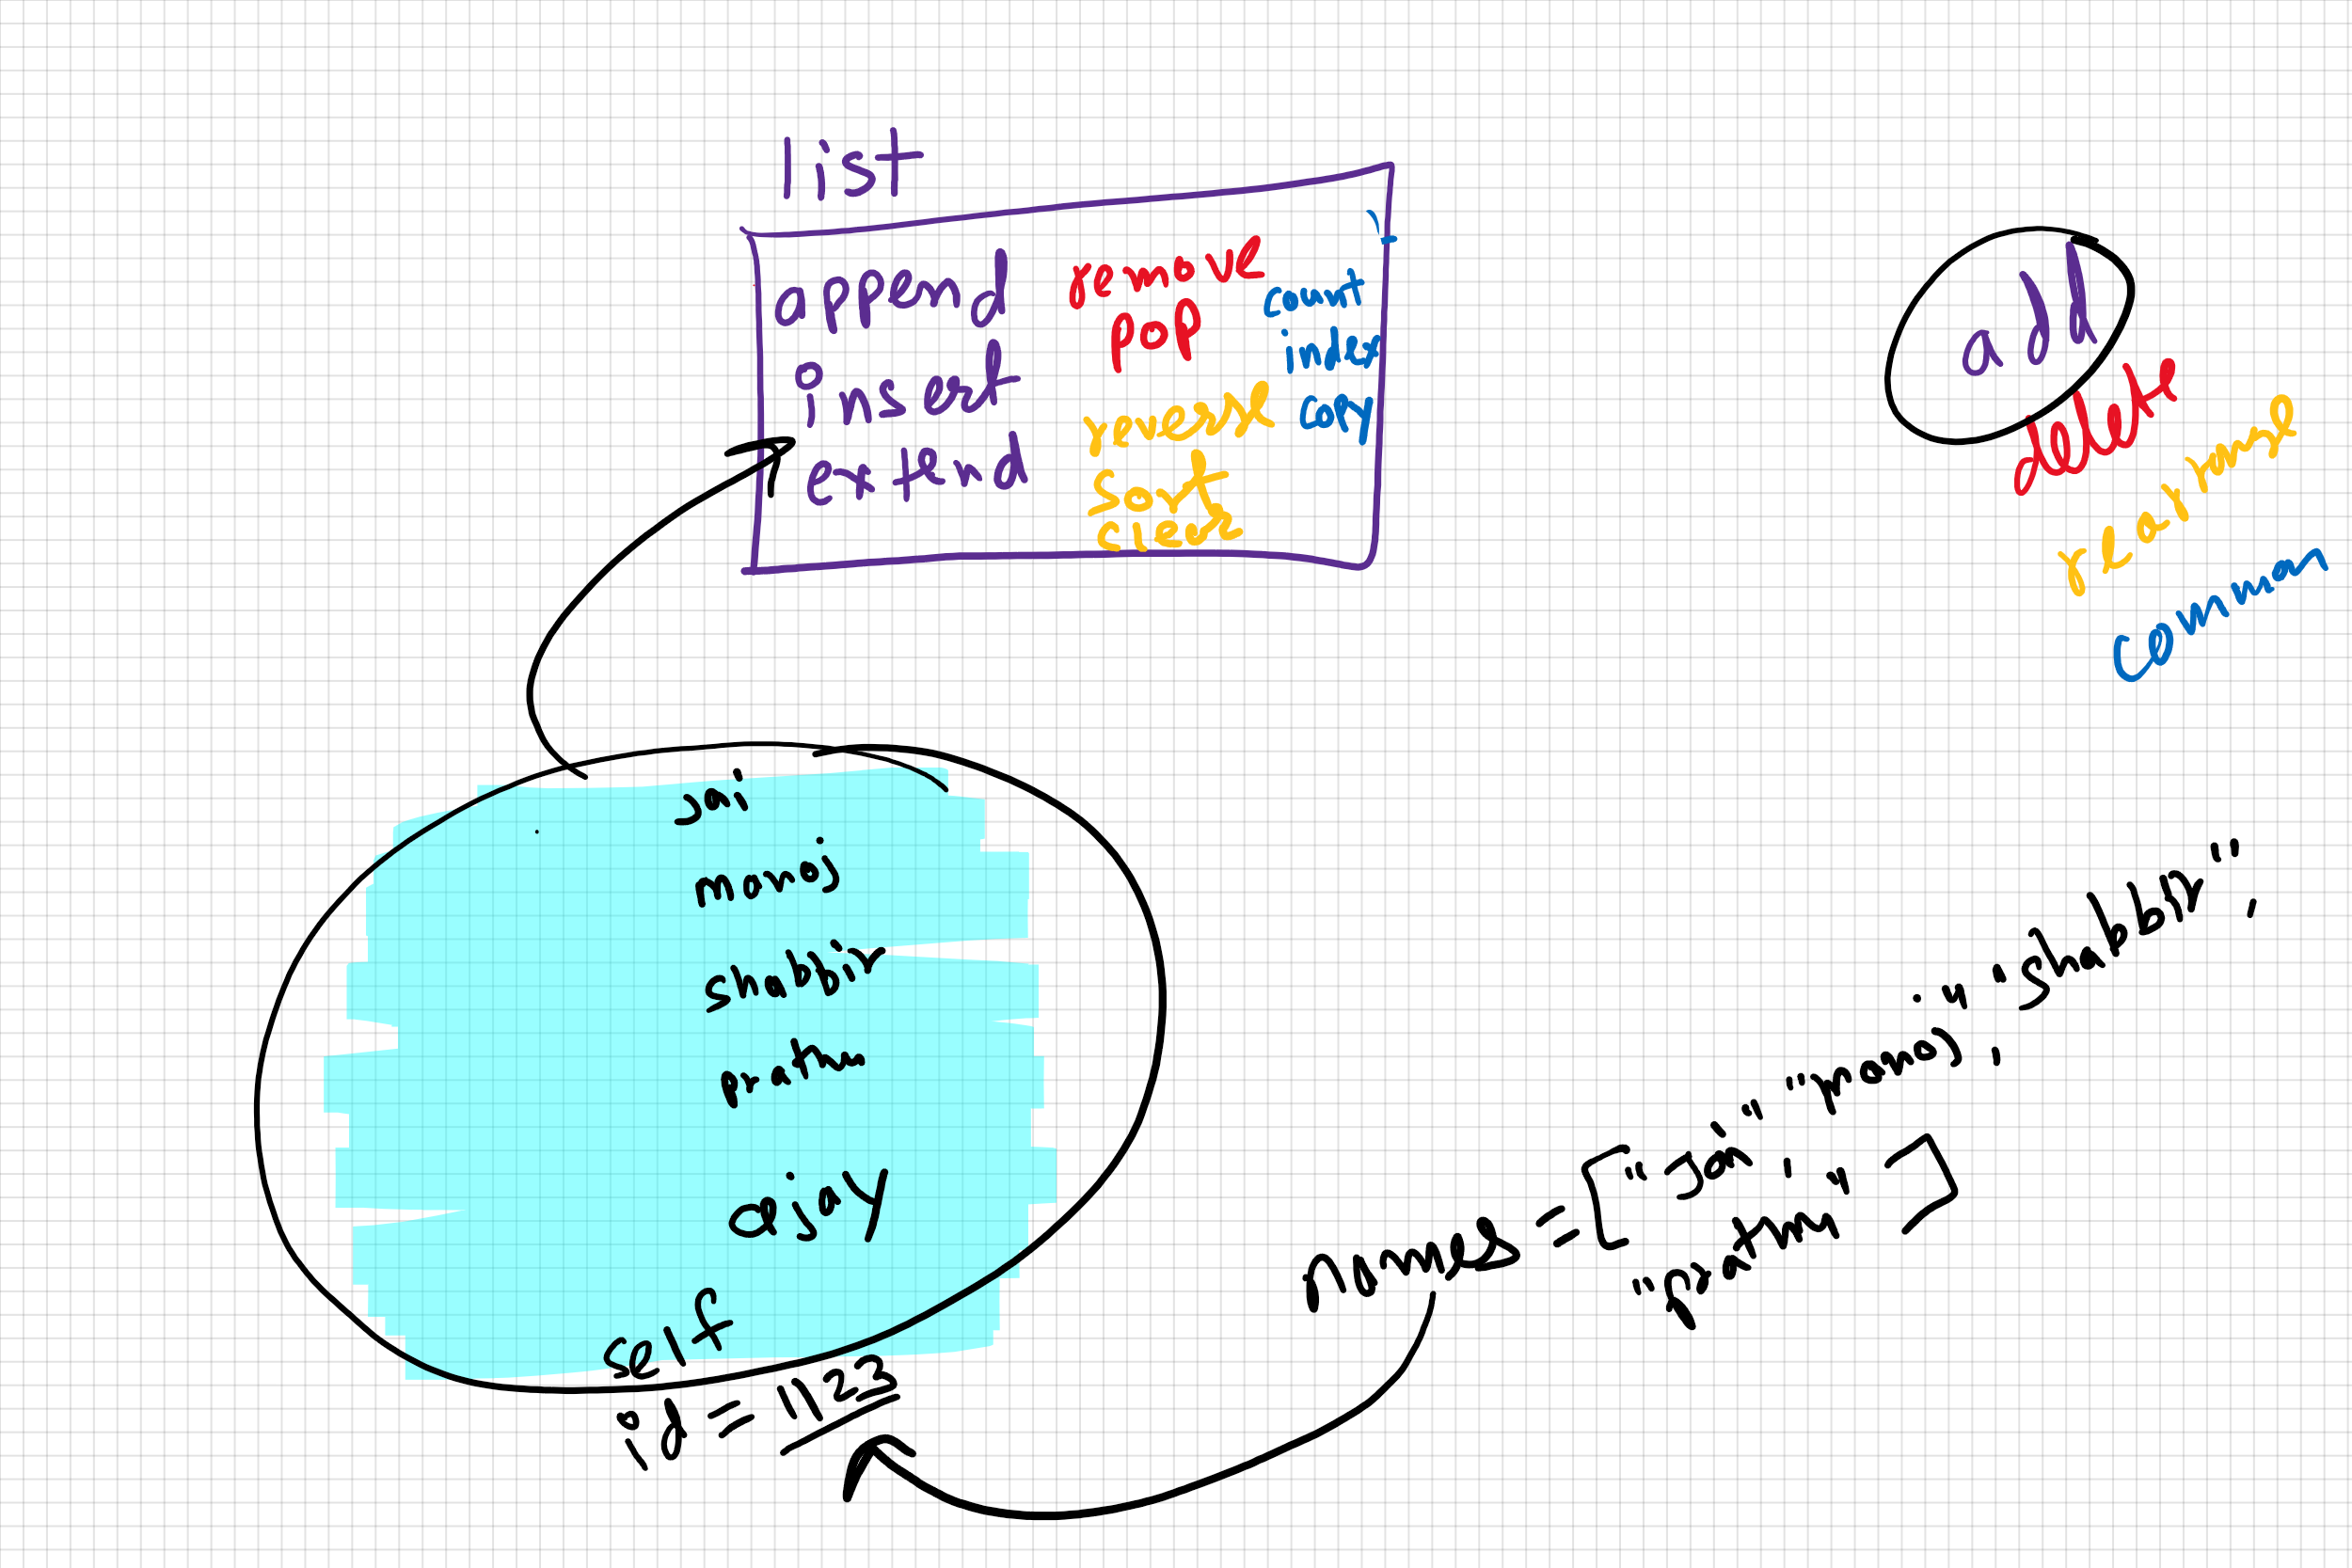 list
append
insert
extend
remove
pop
reverse
sort
clear
count
index
copy
add
delete
rearrange
common
jai
manoj
shabbir
prathu
ajay
self
id = 1123
names = ["Jai", "manoj", "shabbir",
"prathu"]